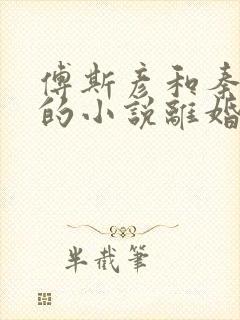 傅斯彦和秦
的小說離婚
半截筆